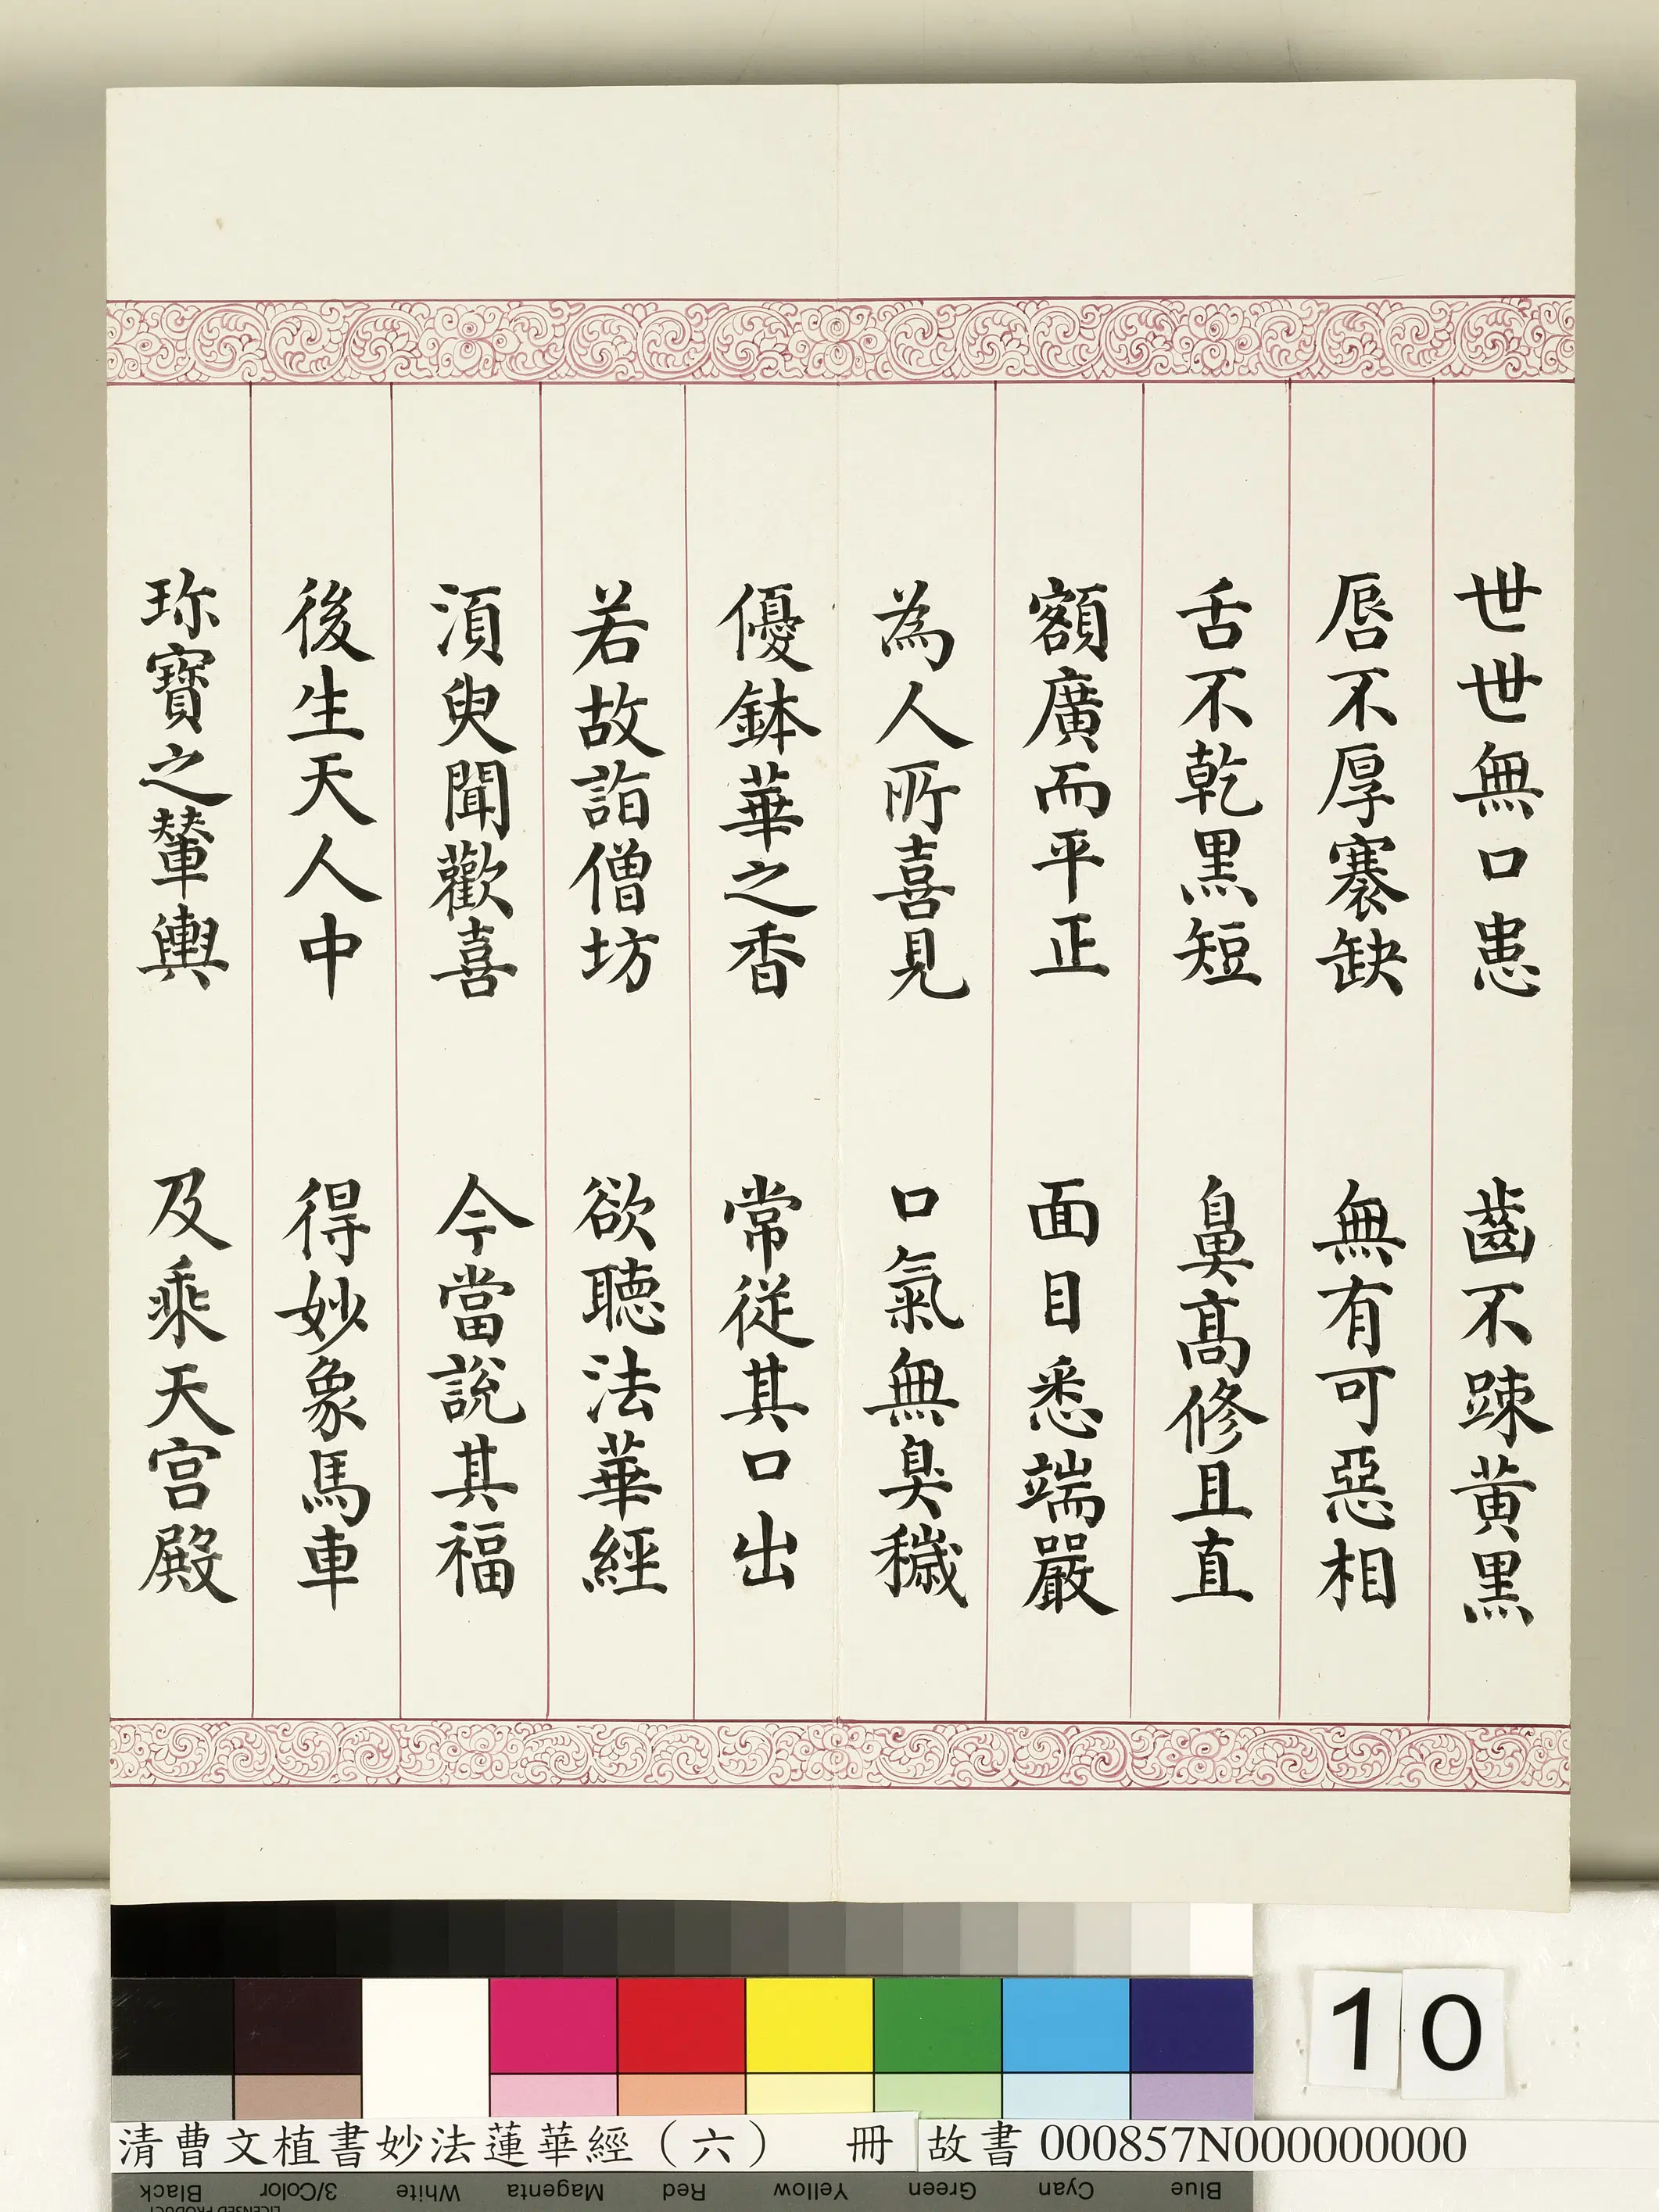 世世無口患　齒不踈黃黑
脣不厚褰缺　無有可惡相
舌不乾黑短　鼻高修且直
額廣而平正　面目悉端嚴
為人所喜見　口氣無臭穢
優鉢華之香　常從其口出
若故詣僧坊　欲聽法華經
須臾聞歡喜　今當說其福
後生天人中　得妙象馬車
珎寶之輦輿　及乘天宮殿
10
清曹文植書妙法蓮華經（六）　冊　故書 000857N000000000
Black 3/Color White Magenta Red Yellow Green Cyan Blue
LICENSED PRODUCT